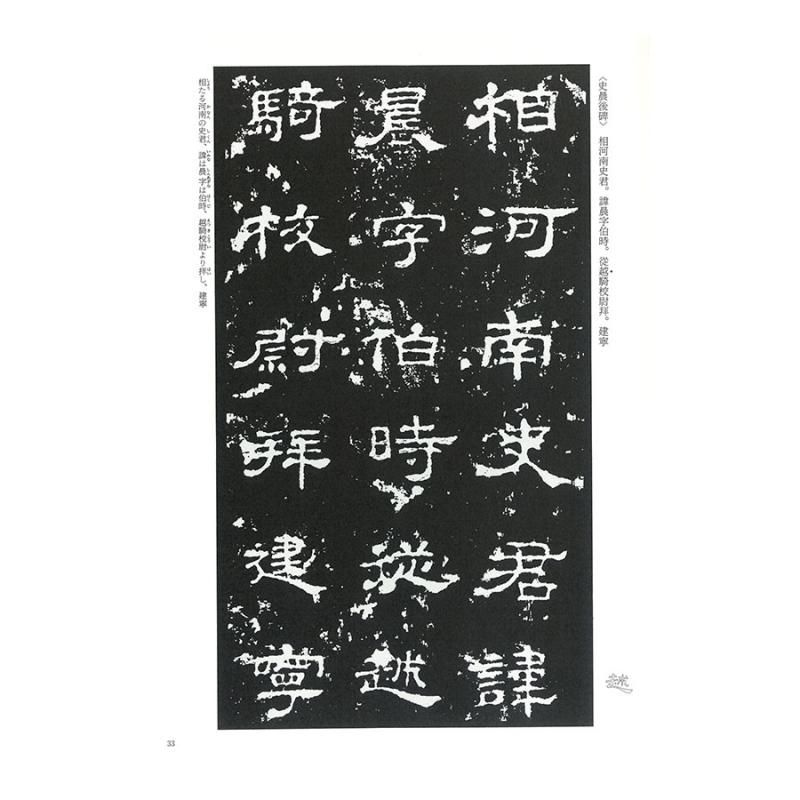 〈史晨後碑〉　相河南史君。諱晨字伯時。從越騎校尉拜。建寧
相河南史君諱
晨字伯時從越
騎校尉拜建寧
相たる河南の史君、諱は晨字は伯時、越騎校尉より拝し、建寧
越
33